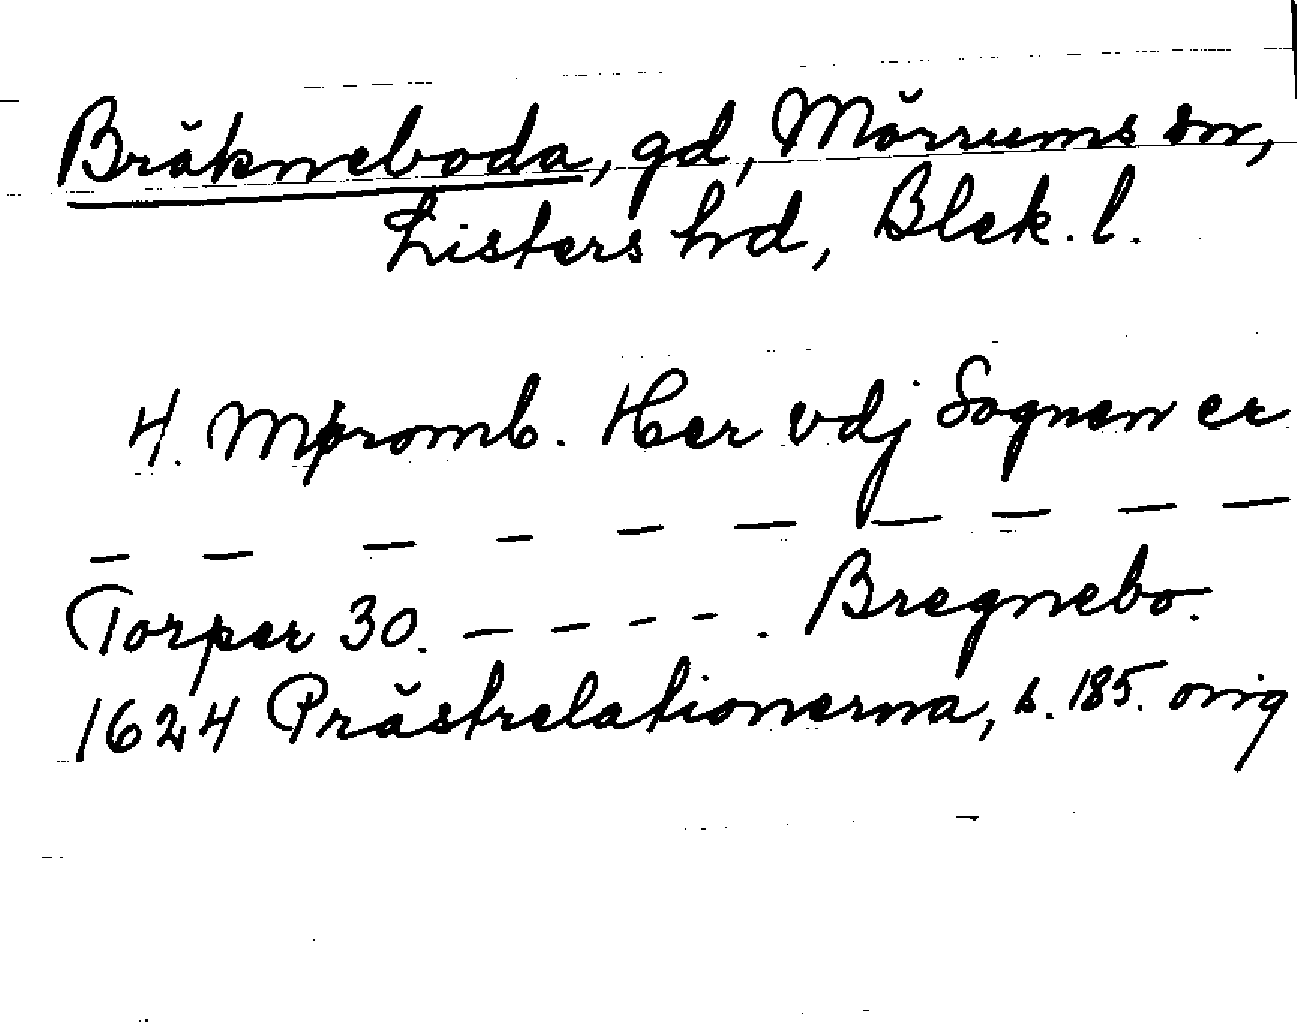 Bräkneboda, gd, Mörrums sn,
Listers hd, Blek. l.
4. Møromb. Her vdj Sognen er
— — — — — — — — — —
Torper 30. — — — — . Bregnebo.
1624 Prästrelationerna, s. 185. orig